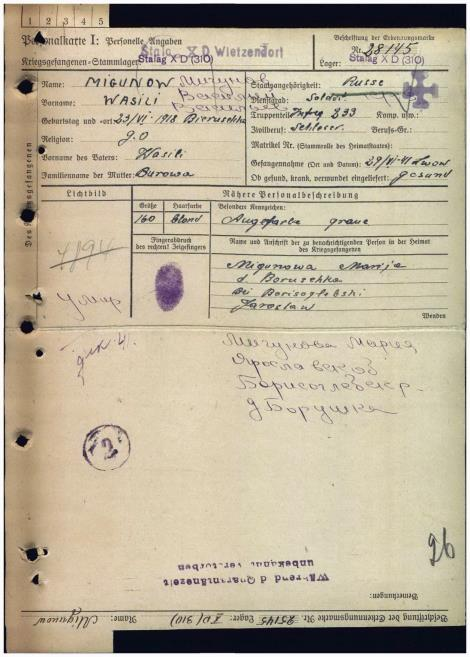 1 2 3 4 5
Personalkarte I: Personelle Angaben
Kriegsgefangenen-Stammlager:
Stalag X D Wietzendorf
Stalag X D (310)
Beschriftung der Erkennungsmarke
Nr. 28145
Lager: Stalag X D (310)
Des Kriegsgefangenen
Name: MIGUNOW Мигунов
Vorname: WASILI Василий
Васильев
Geburtstag und -ort: 23/VI 1918 Bieruschka
Religion: g.o
Vorname des Vaters: Wasili
Familienname der Mutter: Burowa
Staatsangehörigkeit: Russe
Dienstgrad: Soldat
Truppenteil: Inftrg 233 Komp. usw.:
Zivilberuf: Schlosser Berufs-Gr.:
Matrikel Nr. (Stammrolle des Heimatstaates):
Gefangennahme (Ort und Datum): 29/VI-41 Lwow
Ob gesund, krank, verwundet eingeliefert: gesund
Lichtbild
Nähere Personalbeschreibung
Größe Haarfarbe Besondere Kennzeichen:
160 blond Augefarbe graue
Fingerabdruck
des rechten! Zeigefingers
Name und Anschrift der zu benachrichtigenden Person in der Heimat
des Kriegsgefangenen
Migunowa Marija
d. Boruschka
Bei Borisoglebski
Jaroslaw
Wenden
Умир
дек. 41.
Мигунова Мария
Ярославской
Борисоглебск р-
д Борушка
2
26
Während d Quarantänezeit
unbekannt verstorben
Bemerkungen:
Beschriftung der Erkennungsmarke Nr. 28145 Lager: X D (310) Name: Migunow